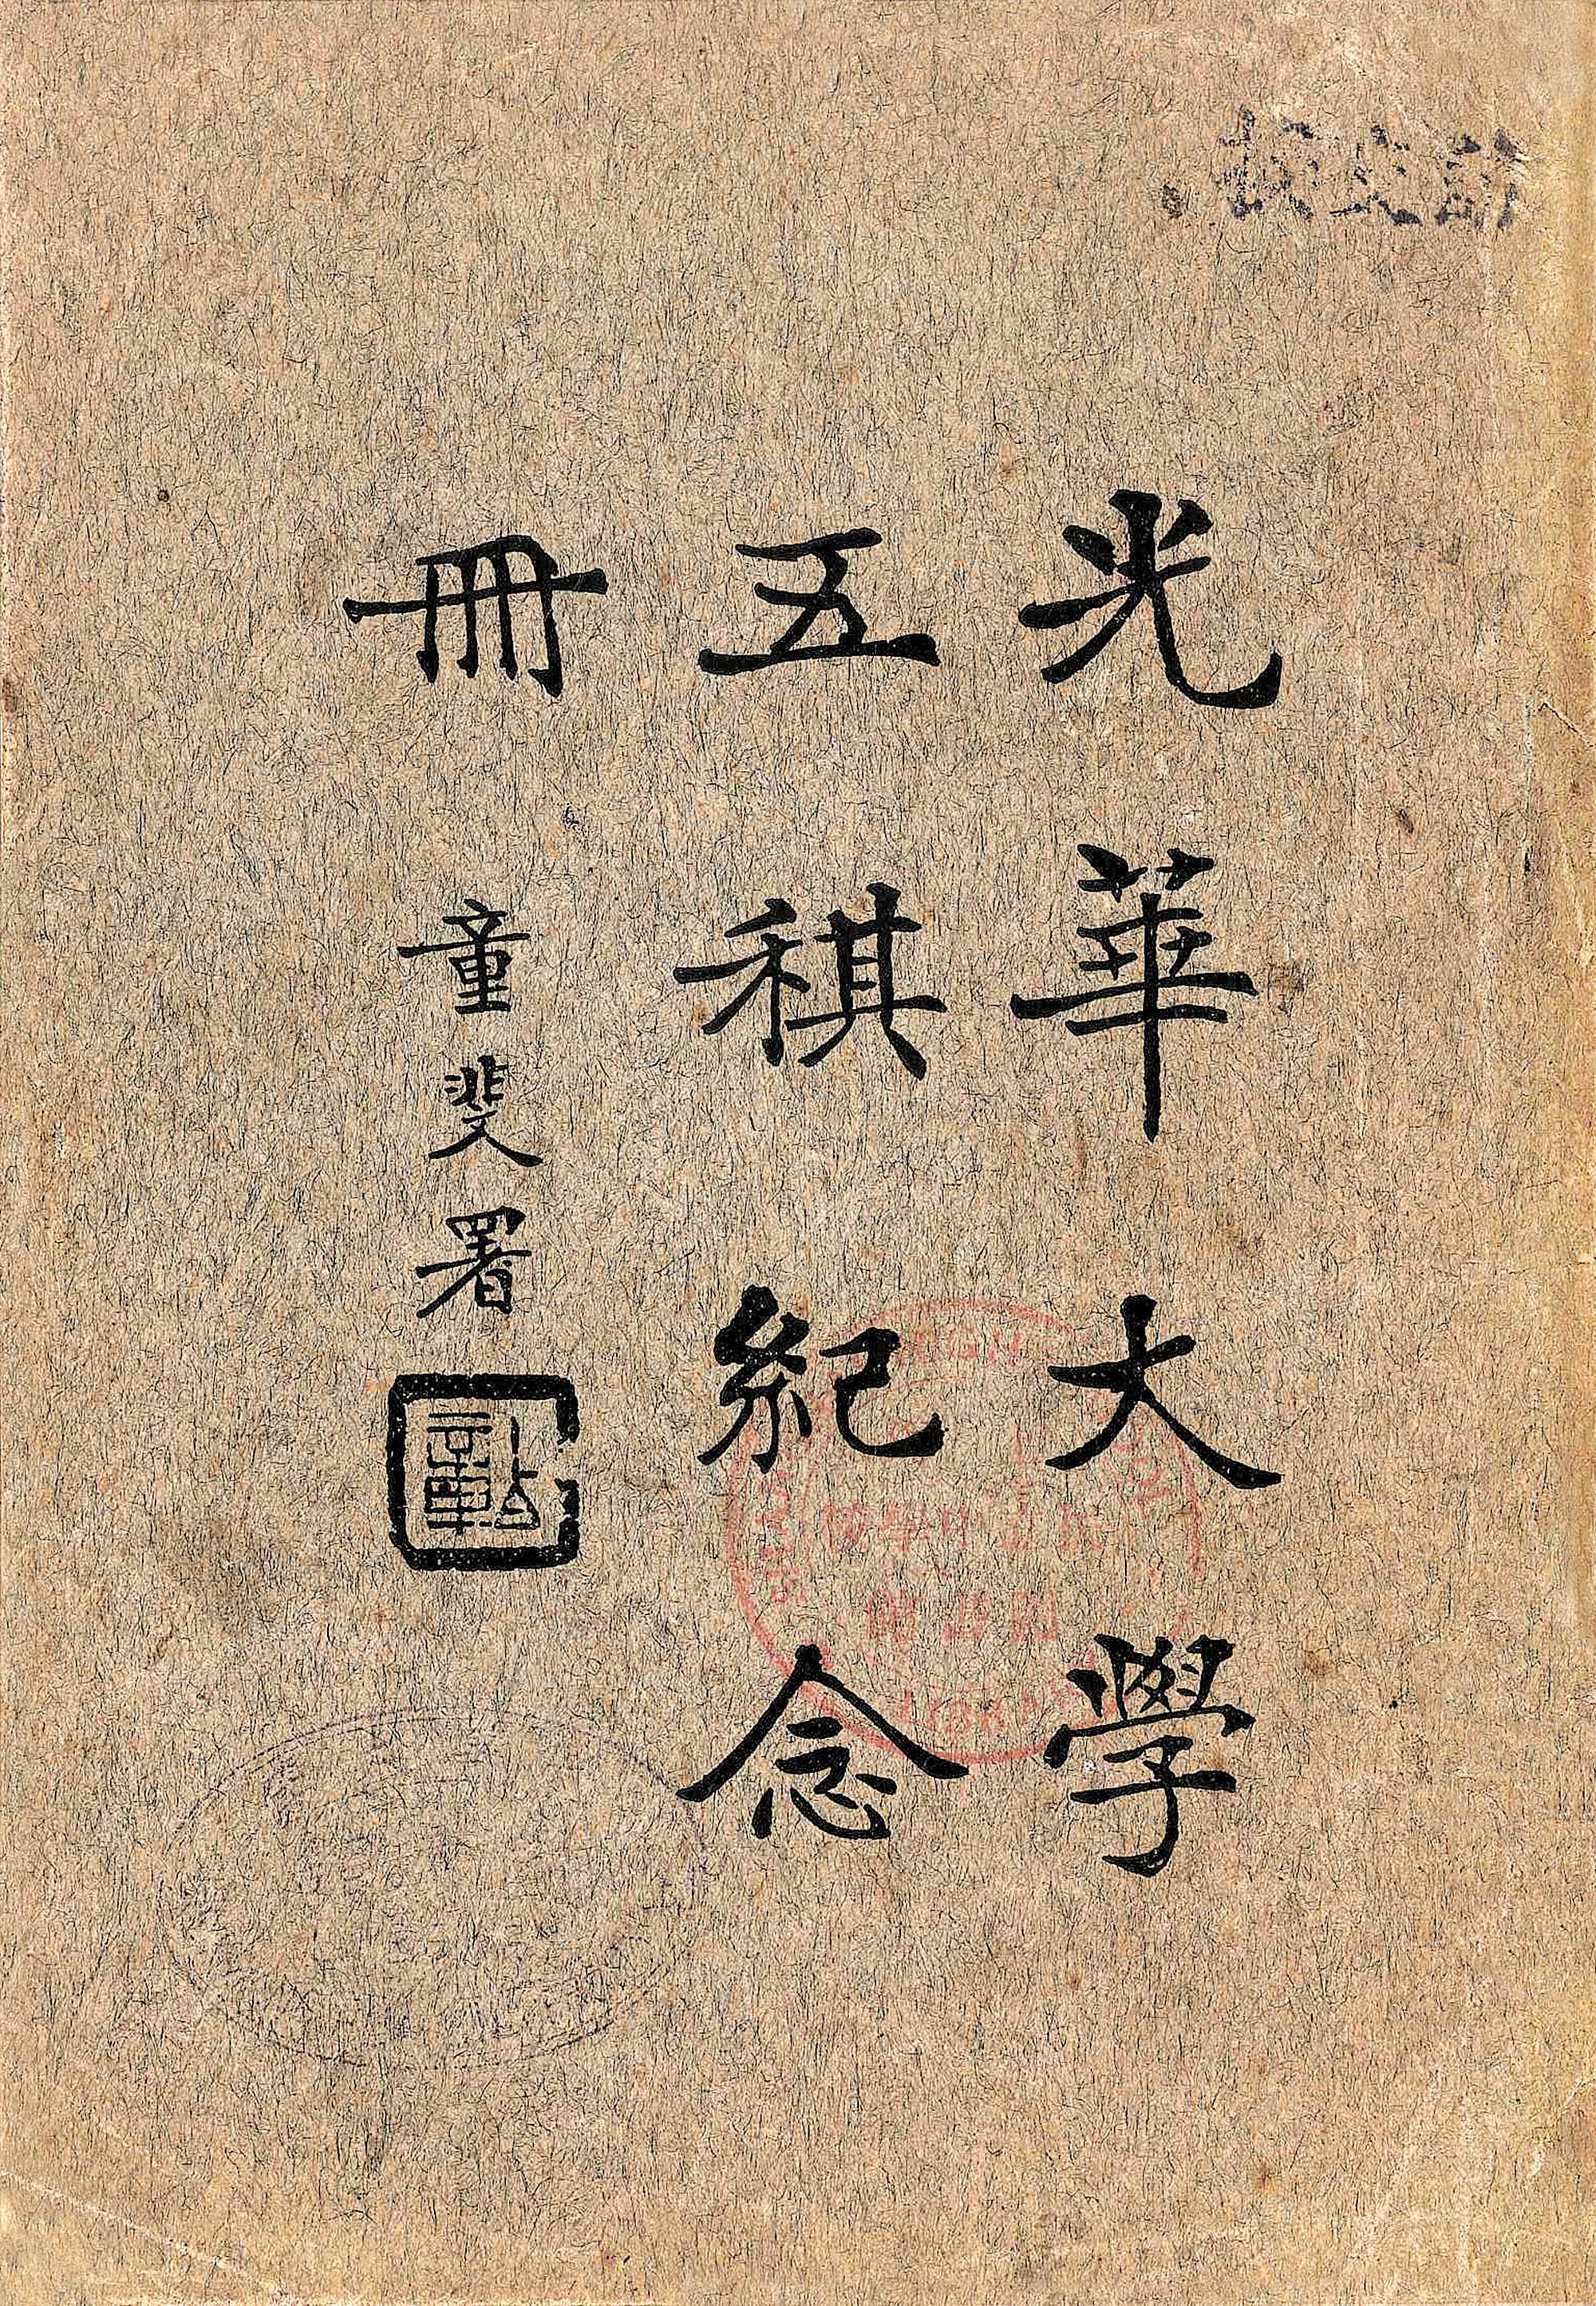 光華大學
五稘紀念
冊
童斐署